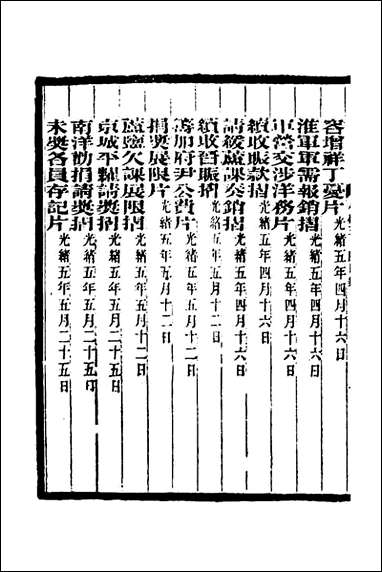 容增祥丁憂片光緒五年四月十六日
淮軍軍需報銷摺光緒五年四月十六日
中營交涉洋務片光緒五年四月十六日
續收賑款摺光緒五年四月十六日
請緩蘆課奏銷摺光緒五年四月十六日
續收晉賑摺光緒五年五月十二日
籌加府尹公費片光緒五年五月十二日
捐獎展限片光緒五年五月十二日
蘆鹽欠課展限摺光緒五年五月十二日
京城平糶請獎摺光緒五年五月二十五日
南洋勸捐請獎摺光緒五年五月二十五日
未獎各員存記片光緒五年五月二十五日